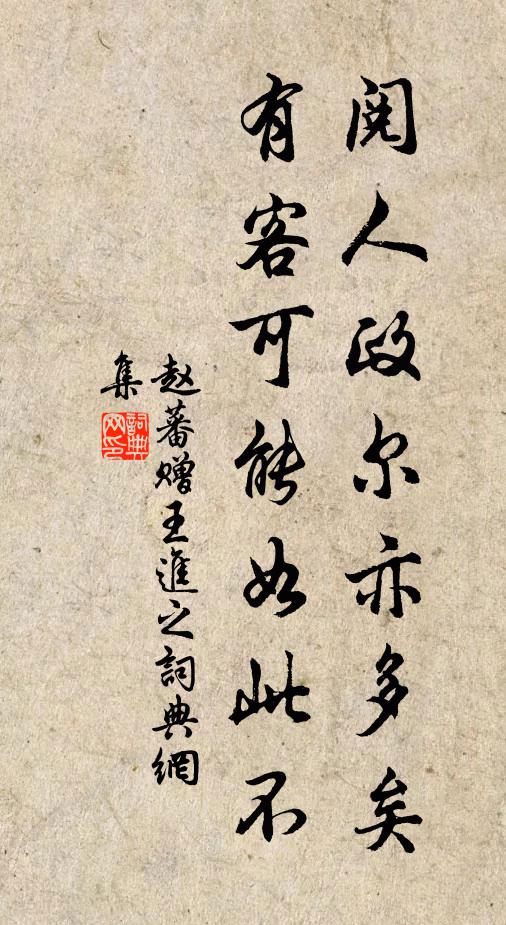 阅人政尔亦多矣
有客可能如此不
赵蕃赠王進之詞典網
集
詞典網印